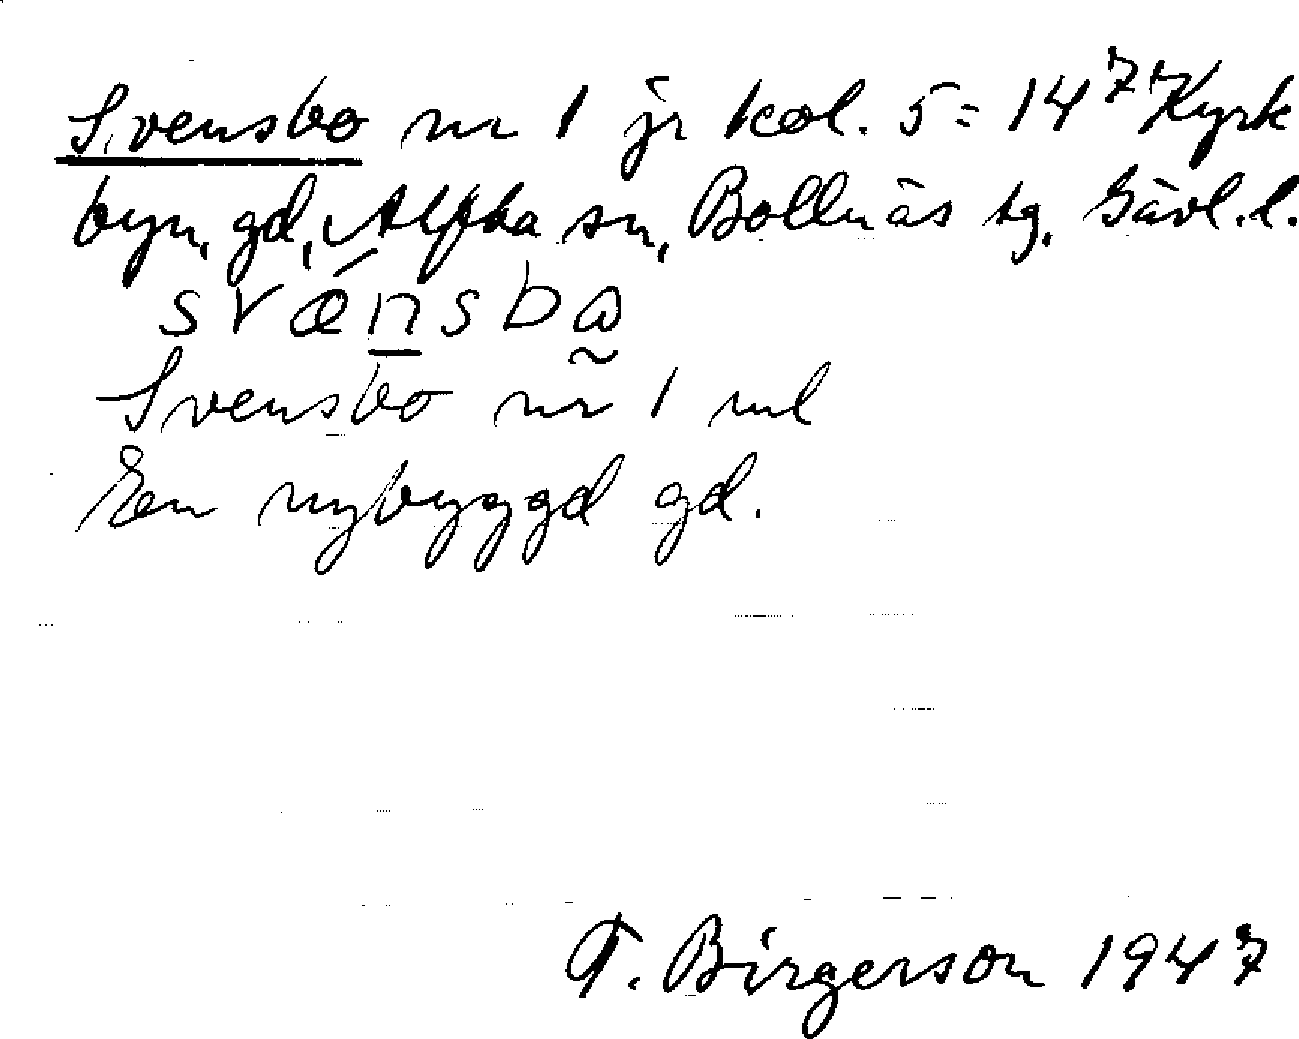 Svensbo nr 1 jr kol. 5 = 14⁷ Kyrk
byn, gd, Alfta sn, Bollnäs tg, Gävl. l.
svǽnsbɷ
Svensbo nr 1 ml
En nybyggd gd.
T. Birgerson 1947